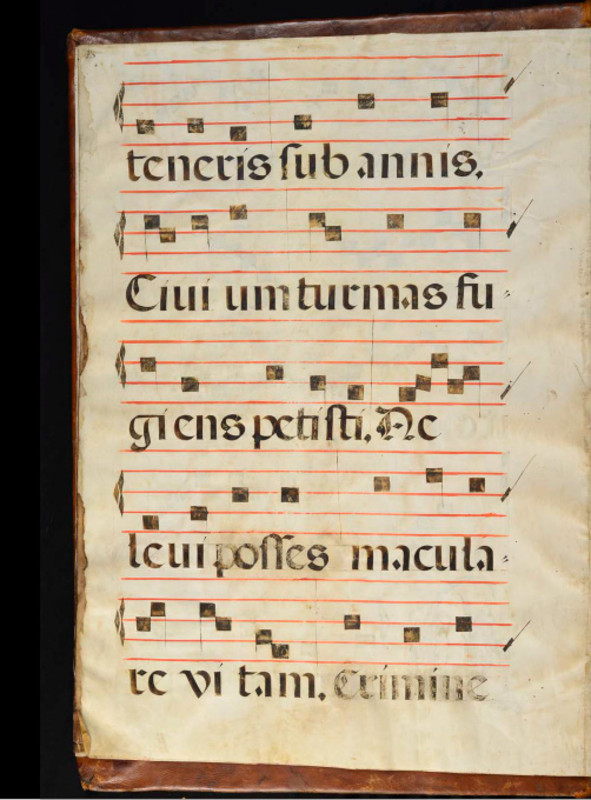 teneris sub annis.
Ciui um turmas fu-
gi ens petisti. Ne
leui posses macula-
re vi tam. Crimine